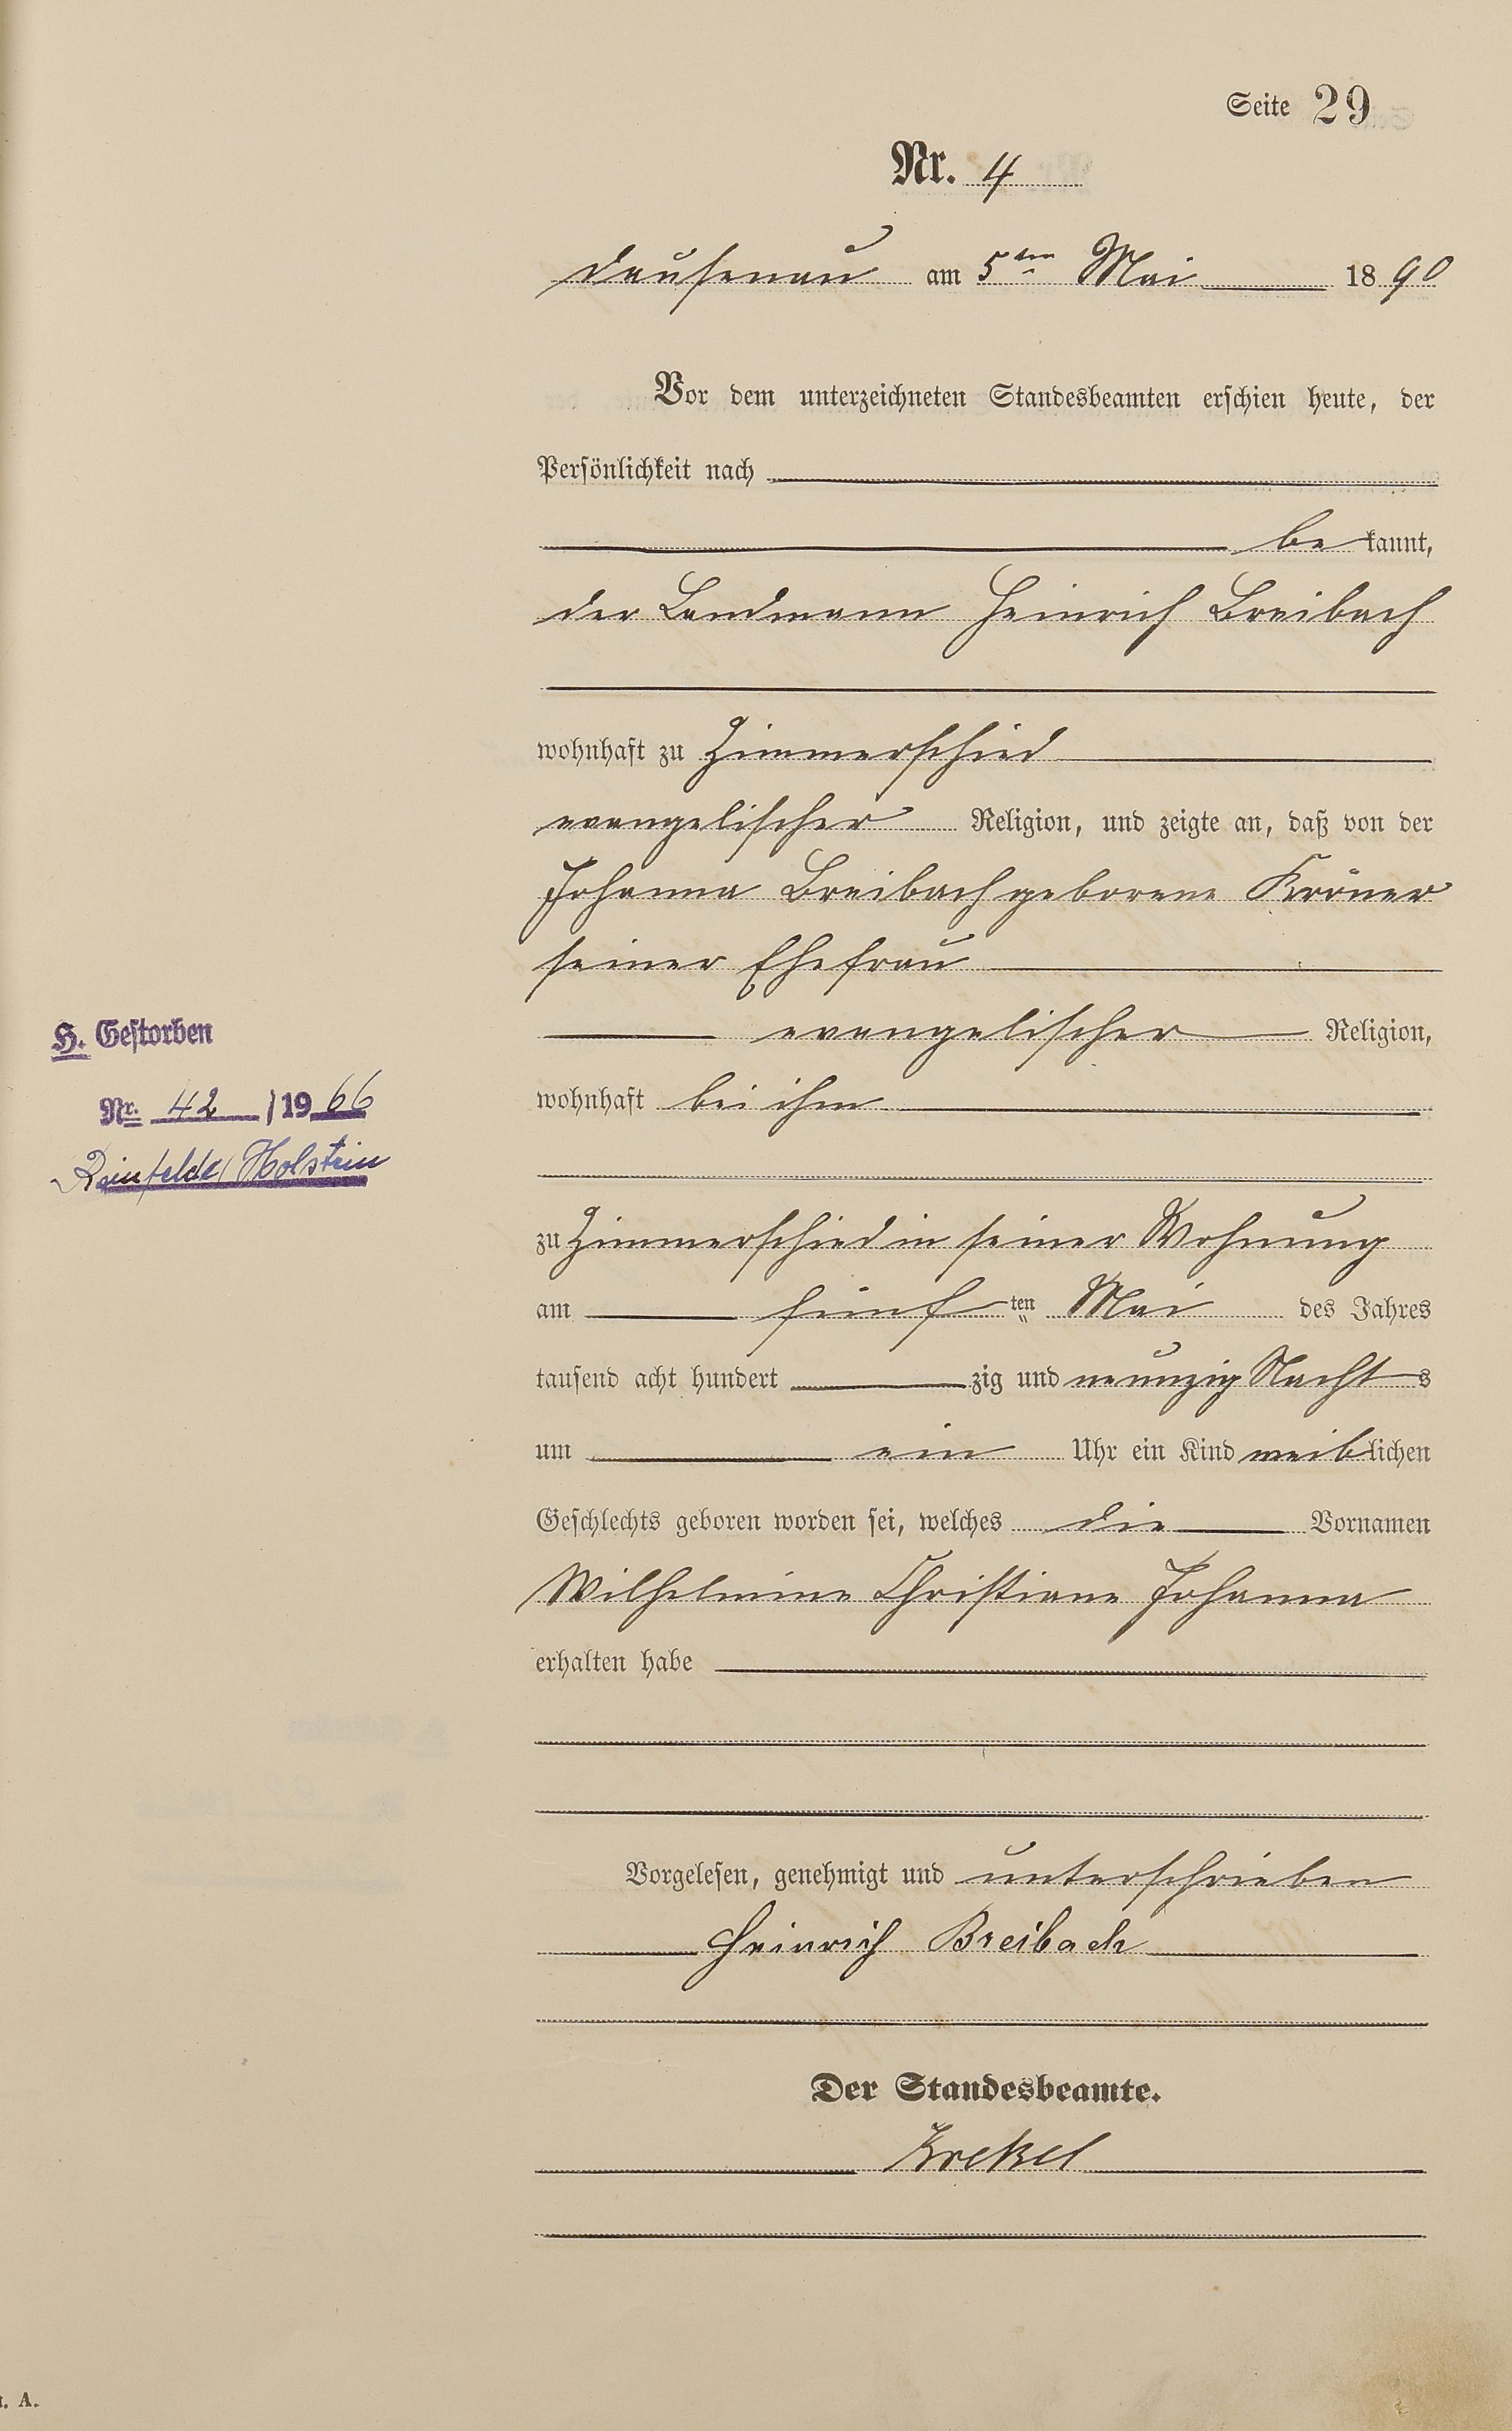 Seite 29
Nr. 4
Dausenau am 5ten Mai 1890
Vor dem unterzeichneten Standesbeamten erschien heute, der
Persönlichkeit nach
be kannt,
der Landmann Heinrich Breibach
wohnhaft zu Zimmerschied
evangelischer Religion, und zeigte an, daß von der
Johanna Breibach geborene Kröner
seiner Ehefrau
evangelischer Religion,
H. Gestorben
Nr. 42 /1966
Reinfelde/Holstein
wohnhaft bei ihm
zu Zimmerschied in seiner Wohnung
am fünf ten Mai des Jahres
tausend acht hundert zig und neunzig Nachts
um ein Uhr ein Kind weiblichen
Geschlechts geboren worden sei, welches die Vornamen
Wilhelmine Christiane Johanna
erhalten habe
Vorgelesen, genehmigt und unterschrieben
Heinrich Breibach
Der Standesbeamte.
Krekel
A.